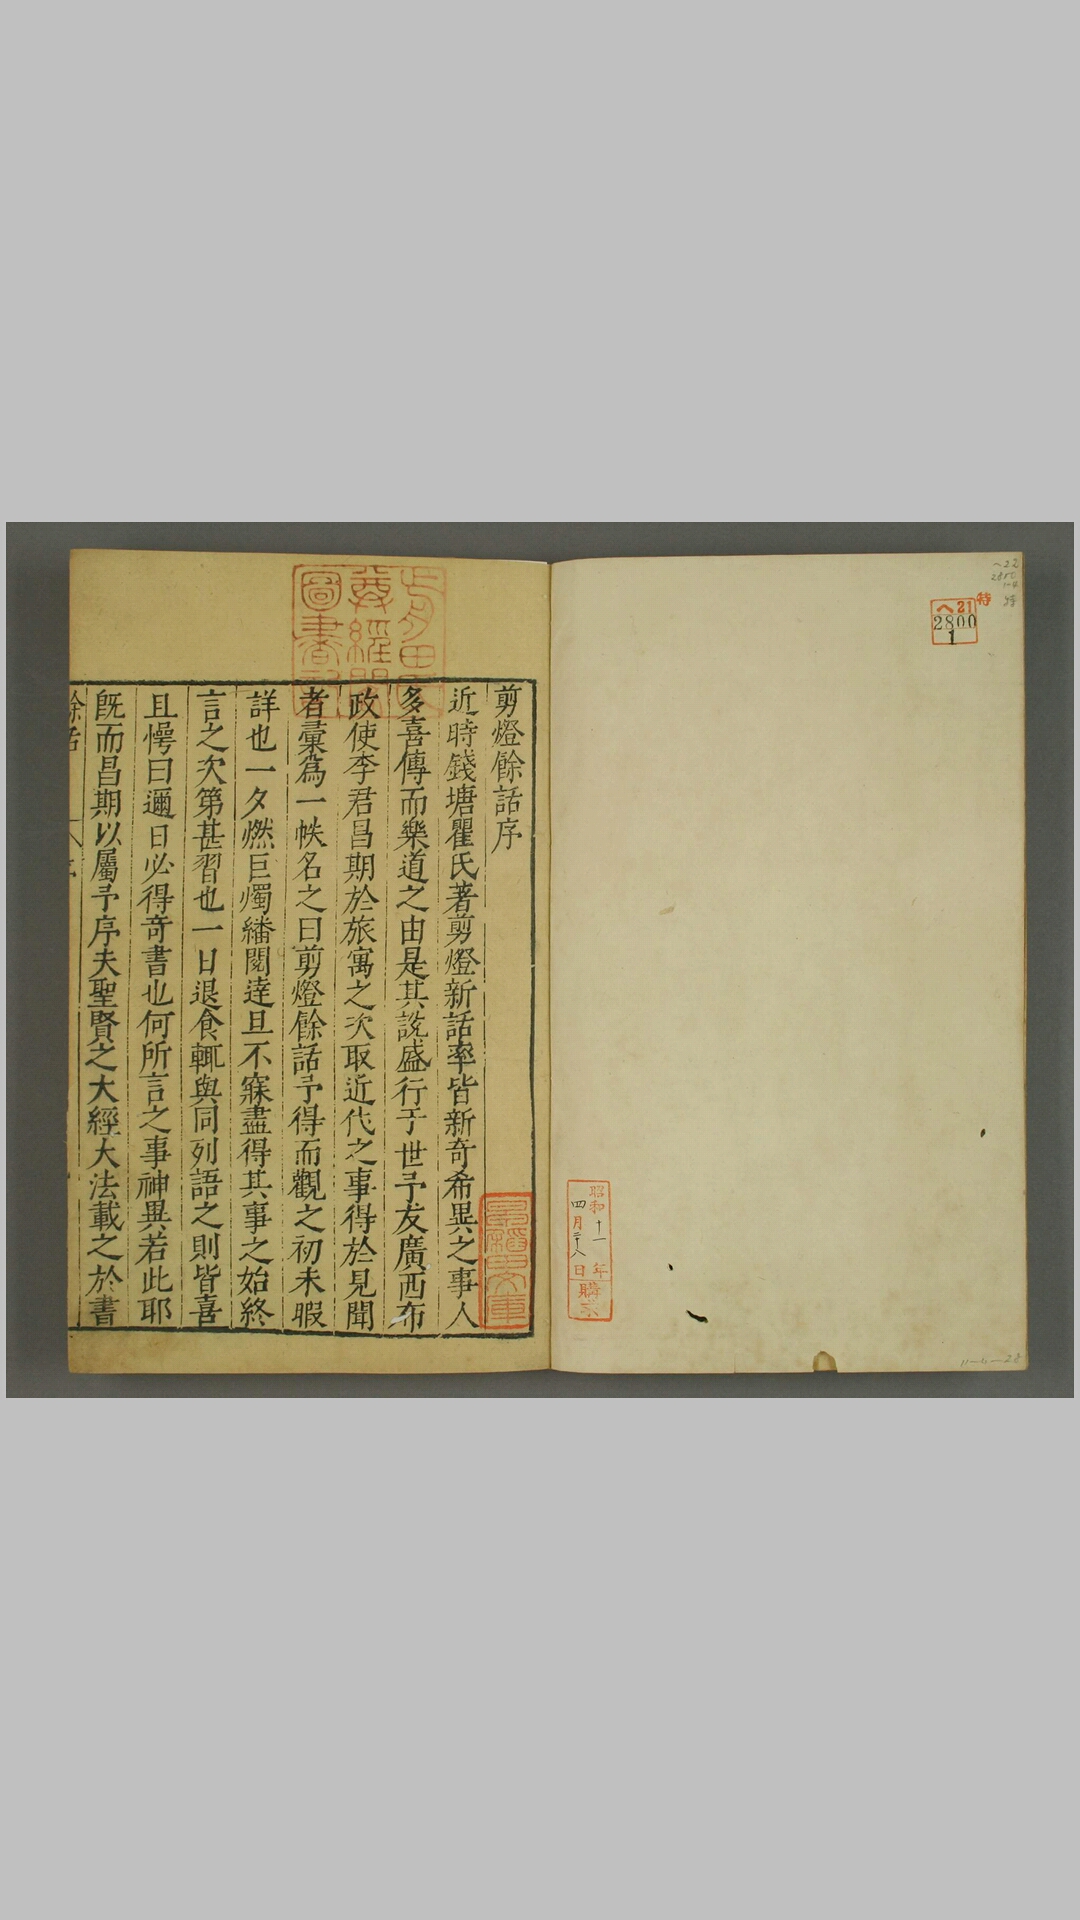 特
ヘ21
2800
1
昭和十一年
四月廿八日
購求
11-4-28
剪燈餘話序
近時錢塘瞿氏著剪燈新話率皆新竒希異之事人
多喜傳而樂道之由是其說盛行于世予友廣西布
政使李君昌期於旅寓之次取近代之事得於見聞
者彚爲一帙名之曰剪燈餘話予得而觀之初未暇
詳也一夕燃巨燭繙閱逹旦不寐盡得其事之始終
言之次第甚習也一日退食輒與同列語之則皆喜
且愕曰邇日必得竒書也何所言之事神異若此耶
旣而昌期以屬予序夫聖賢之大經大法載之於書
餘話
序
尊經閣
圖書記
早稻田文庫